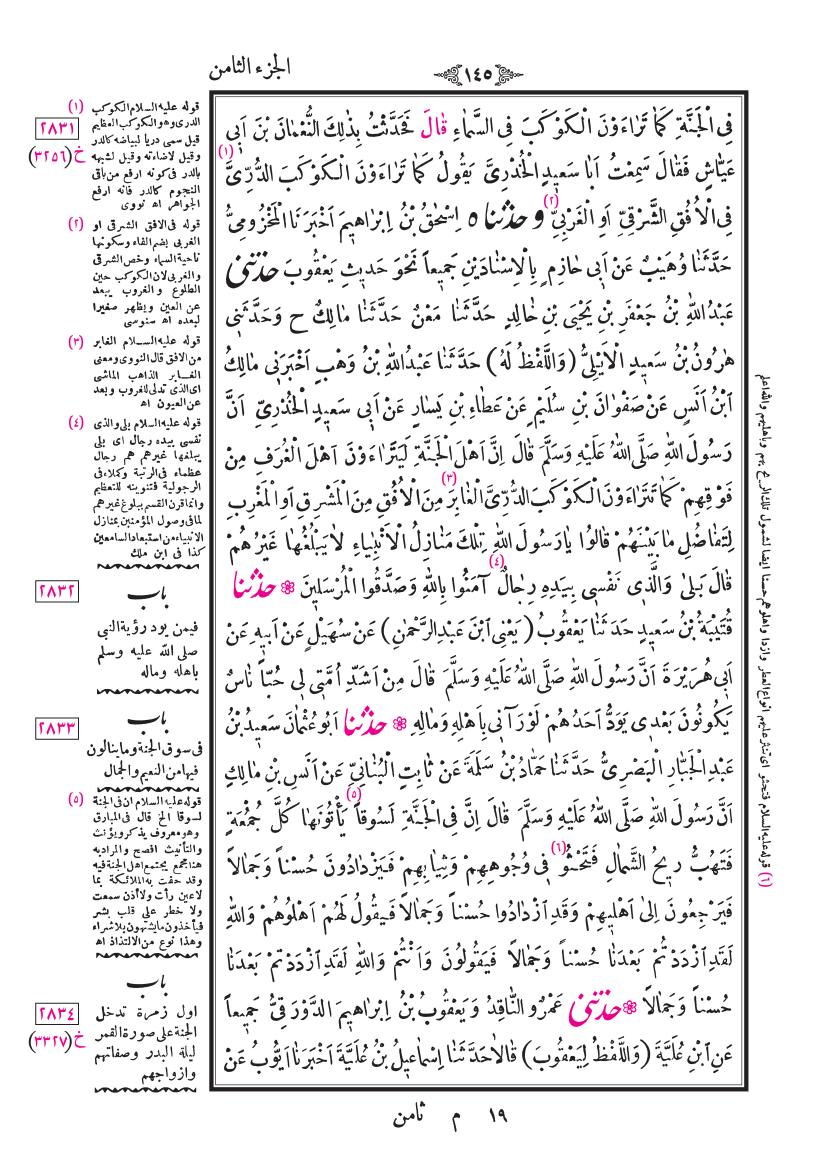 الجزء الثامن
١٤٥
فِى الْجَنَّةِ كَمَا تَرَاءَوْنَ الْكَوْكَبَ فِى السَّمَاءِ قَالَ فَحَدَّثْتُ بِذٰلِكَ النُّعْمَانَ بْنَ اَبِى
عَيَّاشٍ فَقَالَ سَمِعْتُ اَبَا سَعِيدٍ الْخُدْرِىَّ يَقُولُ كَمَا تَرَاءَوْنَ الْكَوْكَبَ الدُّرِّىَّ (١)
فِى الْاُفُقِ الشَّرْقِىِّ اَوِ الْغَرْبِىِّ (٢) و حدثناه اِسْحٰقُ بْنُ اِبْرَاهِيمَ اَخْبَرَنَا الْمَخْزُومِىُّ
حَدَّثَنَا وُهَيْبٌ عَنْ اَبِى حَازِمٍ بِالْاِسْنَادَيْنِ جَمِيعاً نَحْوَ حَدِيثِ يَعْقُوبَ حدثنى
عَبْدُاللهِ بْنُ جَعْفَرِ بْنِ يَحْيَى بْنِ خَالِدٍ حَدَّثَنَا مَعْنٌ حَدَّثَنَا مَالِكٌ ح وَحَدَّثَنِى
هٰرُونُ بْنُ سَعِيدٍ الْاَيْلِىُّ (وَاللَّفْظُ لَهُ) حَدَّثَنَا عَبْدُاللهِ بْنُ وَهْبٍ اَخْبَرَنِى مَالِكُ
ابْنُ اَنَسٍ عَنْ صَفْوَانَ بْنِ سُلَيْمٍ عَنْ عَطَاءِ بْنِ يَسَارٍ عَنْ اَبِى سَعِيدٍ الْخُدْرِىِّ اَنَّ
رَسُولَ اللهِ صَلَّى اللهُ عَلَيْهِ وَسَلَّمَ قَالَ اِنَّ اَهْلَ الْجَنَّةِ لَيَتَرَاءَوْنَ اَهْلَ الْغُرَفِ مِنْ
فَوْقِهِمْ كَمَا تَتَرَاءَوْنَ الْكَوْكَبَ الدُّرِّىَّ الْغَابِرَ (٣) مِنَ الْاُفُقِ مِنَ الْمَشْرِقِ اَوِ الْمَغْرِبِ
لِتَفَاضُلِ مَا بَيْنَهُمْ قَالُوا يَارَسُولَ اللهِ تِلْكَ مَنَازِلُ الْاَنْبِيَاءِ لَا يَبْلُغُهَا غَيْرُهُمْ
قَالَ بَلٰى وَالَّذِى نَفْسِى بِيَدِهِ رِجَالٌ (٤) آمَنُوا بِاللهِ وَصَدَّقُوا الْمُرْسَلِينَ ❁ حدثنا
قُتَيْبَةُ بْنُ سَعِيدٍ حَدَثَنَا يَعْقُوبُ (يَعْنِى ابْنَ عَبْدِالرَّحْمٰنِ) عَنْ سُهَيْلٍ عَنْ اَبِيهِ عَنْ
اَبِى هُرَيْرَةَ اَنَّ رَسُولَ اللهِ صَلَّى اللهُ عَلَيْهِ وَسَلَّمَ قَالَ مِنْ اَشَدِّ اُمَّتِى لِى حُبّاً نَاسٌ
يَكُونُونَ بَعْدِى يَوَدُّ اَحَدُهُمْ لَوْ رَآنِى بِاَهْلِهِ وَمَالِهِ ❁ حدثنا اَبُو عُثْمَانَ سَعِيدُ بْنُ
عَبْدِ الْجَبَّارِ الْبَصْرِىُّ حَدَّثَنَا حَمَّادُ بْنُ سَلَمَةَ عَنْ ثَابِتٍ الْبُنَانِىِّ عَنْ اَنَسِ بْنِ مَالِكٍ
اَنَّ رَسُولَ اللهِ صَلَّى اللهُ عَلَيْهِ وَسَلَّمَ قَالَ اِنَّ فِى الْجَنَّةِ لَسُوقاً (٥) يَأْتُونَهَا كُلَّ جُمُعَةٍ
فَتَهُبُّ رِيحُ الشَّمَالِ فَتَحْثُو (٦) فِى وُجُوهِهِمْ وَثِيَابِهِمْ فَيَزْدَادُونَ حُسْناً وَجَمَالاً
فَيَرْجِعُونَ اِلٰى اَهْلِيهِمْ وَقَدِ ازْدَادُوا حُسْناً وَجَمَالاً فَيَقُولُ لَهُمْ اَهْلُوهُمْ وَاللهِ
لَقَدِ ازْدَدْتُمْ بَعْدَنَا حُسْناً وَجَمَالاً فَيَقُولُونَ وَاَنْتُمْ وَاللهِ لَقَدِ ازْدَدْتُمْ بَعْدَنَا
حُسْناً وَجَمَالاً ❁ حدثنى عَمْرٌو النَّاقِدُ وَيَعْقُوبُ بْنُ اِبْرَاهِيمَ الدَّوْرَقِىُّ جَمِيعاً
عَنِ ابْنِ عُلَيَّةَ (وَاللَّفْظُ لِيَعْقُوبَ) قَالَا حَدَّثَنَا اِسْمَاعِيلُ بْنُ عُلَيَّةَ اَخْبَرَنَا اَيُّوبُ عَنْ
(١) قوله عليه السلام الكوكب
الدرى وهو الكوكب العظيم
قيل سمى دريا لبياضه كالدر
وقيل لاضاءته وقيل لشبهه
بالدر فى كونه ارفع من باقى
النجوم كالدر فانه ارفع
الجواهر اه نووى
٢٨٣١
خ (٣٢٥٦)
(٢) قوله فى الافق الشرقى او
الغربى بضم الفاء وسكونها
ناحية السماء وخص الشرقى
والغربى لان الكوكب حين
الطلوع و الغروب يبعد
عن العين ويظهر صغيرا
لبعده اه سنوسى
(٣) قوله عليه السلام الغابر
من الافق قال النووى ومعنى
الغابر الذاهب الماشى
اى الذى تدلى للغروب وبعد
عن العيون اه
(٤) قوله عليه السلام بلى والذى
نفسى بيده رجال اى بلى
يبلغها غيرهم هم رجال
عظماء فى الرتبة وكملاء فى
الرجولية فتنوينه للتعظيم
وانما قرن القسم ببلوغ غيرهم
لما فى وصول المؤمنين بمنازل
الانبياء من استبعاد السامعين
كذا فى ابن ملك
باب
٢٨٣٢
فيمن يود رؤية النبى
صلى الله عليه وسلم
باهله وماله
باب
٢٨٣٣
فى سوق الجنة وما ينالون
فيها من النعيم والجمال
(٥) قوله عليه السلام ان فى الجنة
لسوقا الخ قال فى المبارق
وهو معروف يذكر ويؤنث
والتأنيث افصح والمراد به
هنا مجمع يجتمع اهل الجنة فيه
وقد حفت به الملائكة بما
لا عين رأت ولا أذن سمعت
ولا خطر على قلب بشر
فيأخذون ما يشتهون بلا شراء
وهذا نوع من الالتذاذ اه
باب
٢٨٣٤
خ (٣٣٢٧)
اول زمرة تدخل
الجنة على صورة القمر
ليلة البدر وصفاتهم
وازواجهم
(٦) قوله عليه السلام فتحثو اى تنثر عليهم انواع العطر وازدا واهلوهم حسنا ايضا لشمول تلك الريح بهم وباهليهم والله اعلم
١٩ م ثامن